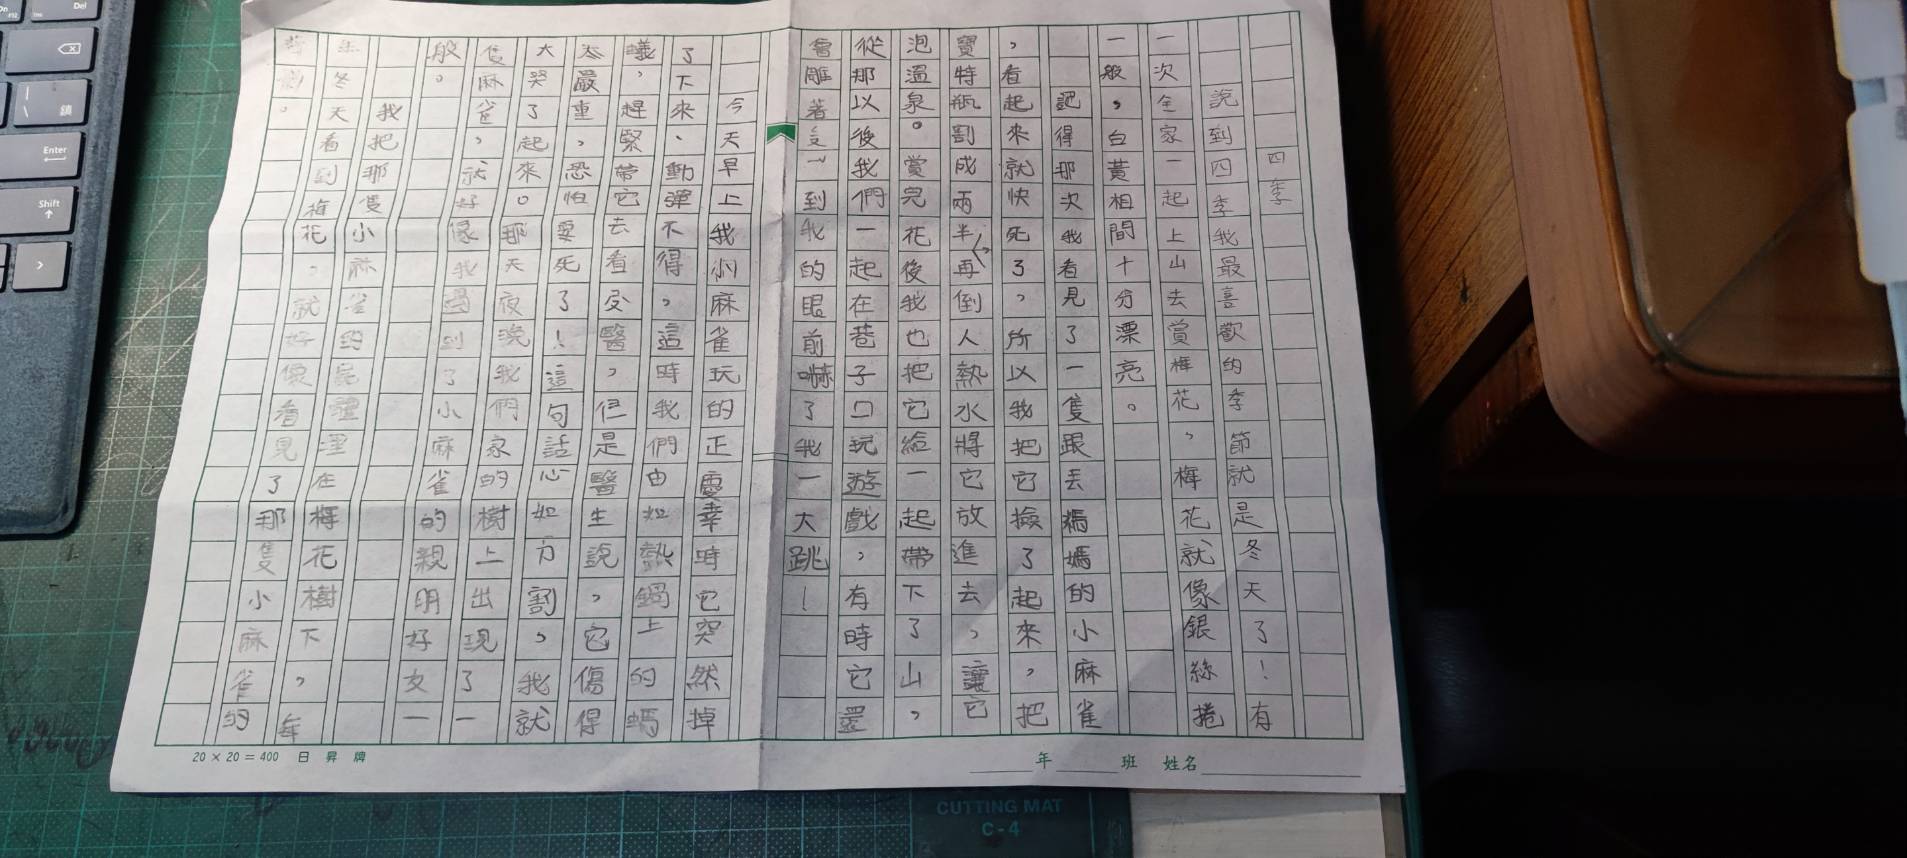 四季
說到四季我最喜歡的季節就是冬天了!有
一次全家一起上山去賞梅花,梅花就像銀絲捲
一般,白黃相間十分漂亮。
記得那次我看見了一隻跟丟媽媽的小麻雀
,看起來就快死了,所以我把它撿了起來,把
寶特瓶割成兩半,再倒人熱水將它放進去,讓它
泡溫泉。賞完花後我也把它給一起帶下了山,
從那以後我們一起在巷子口玩遊戲,有時它還
會雕著到我的眼前嚇了我一大跳!
今天早上我小麻雀玩的正慶幸時它突然掉
了下來、動彈不得,這時我們由如熱鍋上的螞
蟻,趕緊帶它去看醫,但是醫生說,它傷得
太嚴重,恐怕要死了!這句話心如刀割,我就
大哭了起來。那天夜晚我們家的樹上出現了一
隻麻雀,就好像我遇到了小麻雀的親朋好友一
般。
我把那隻小麻雀的屍體埋在梅花樹下,每
年冬天看到梅花,就好像看見了那隻小麻雀的
。
20 × 20 = 400 日昇牌
年 班 姓名
Del
Enter
Shift
CUTTING MAT
C-4